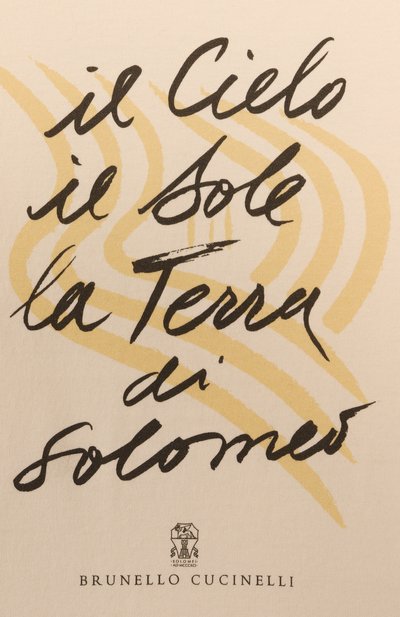 il Cielo
il Sole
la Terra
di
Solomeo
SOLOMEI
BRUNELLO CUCINELLI